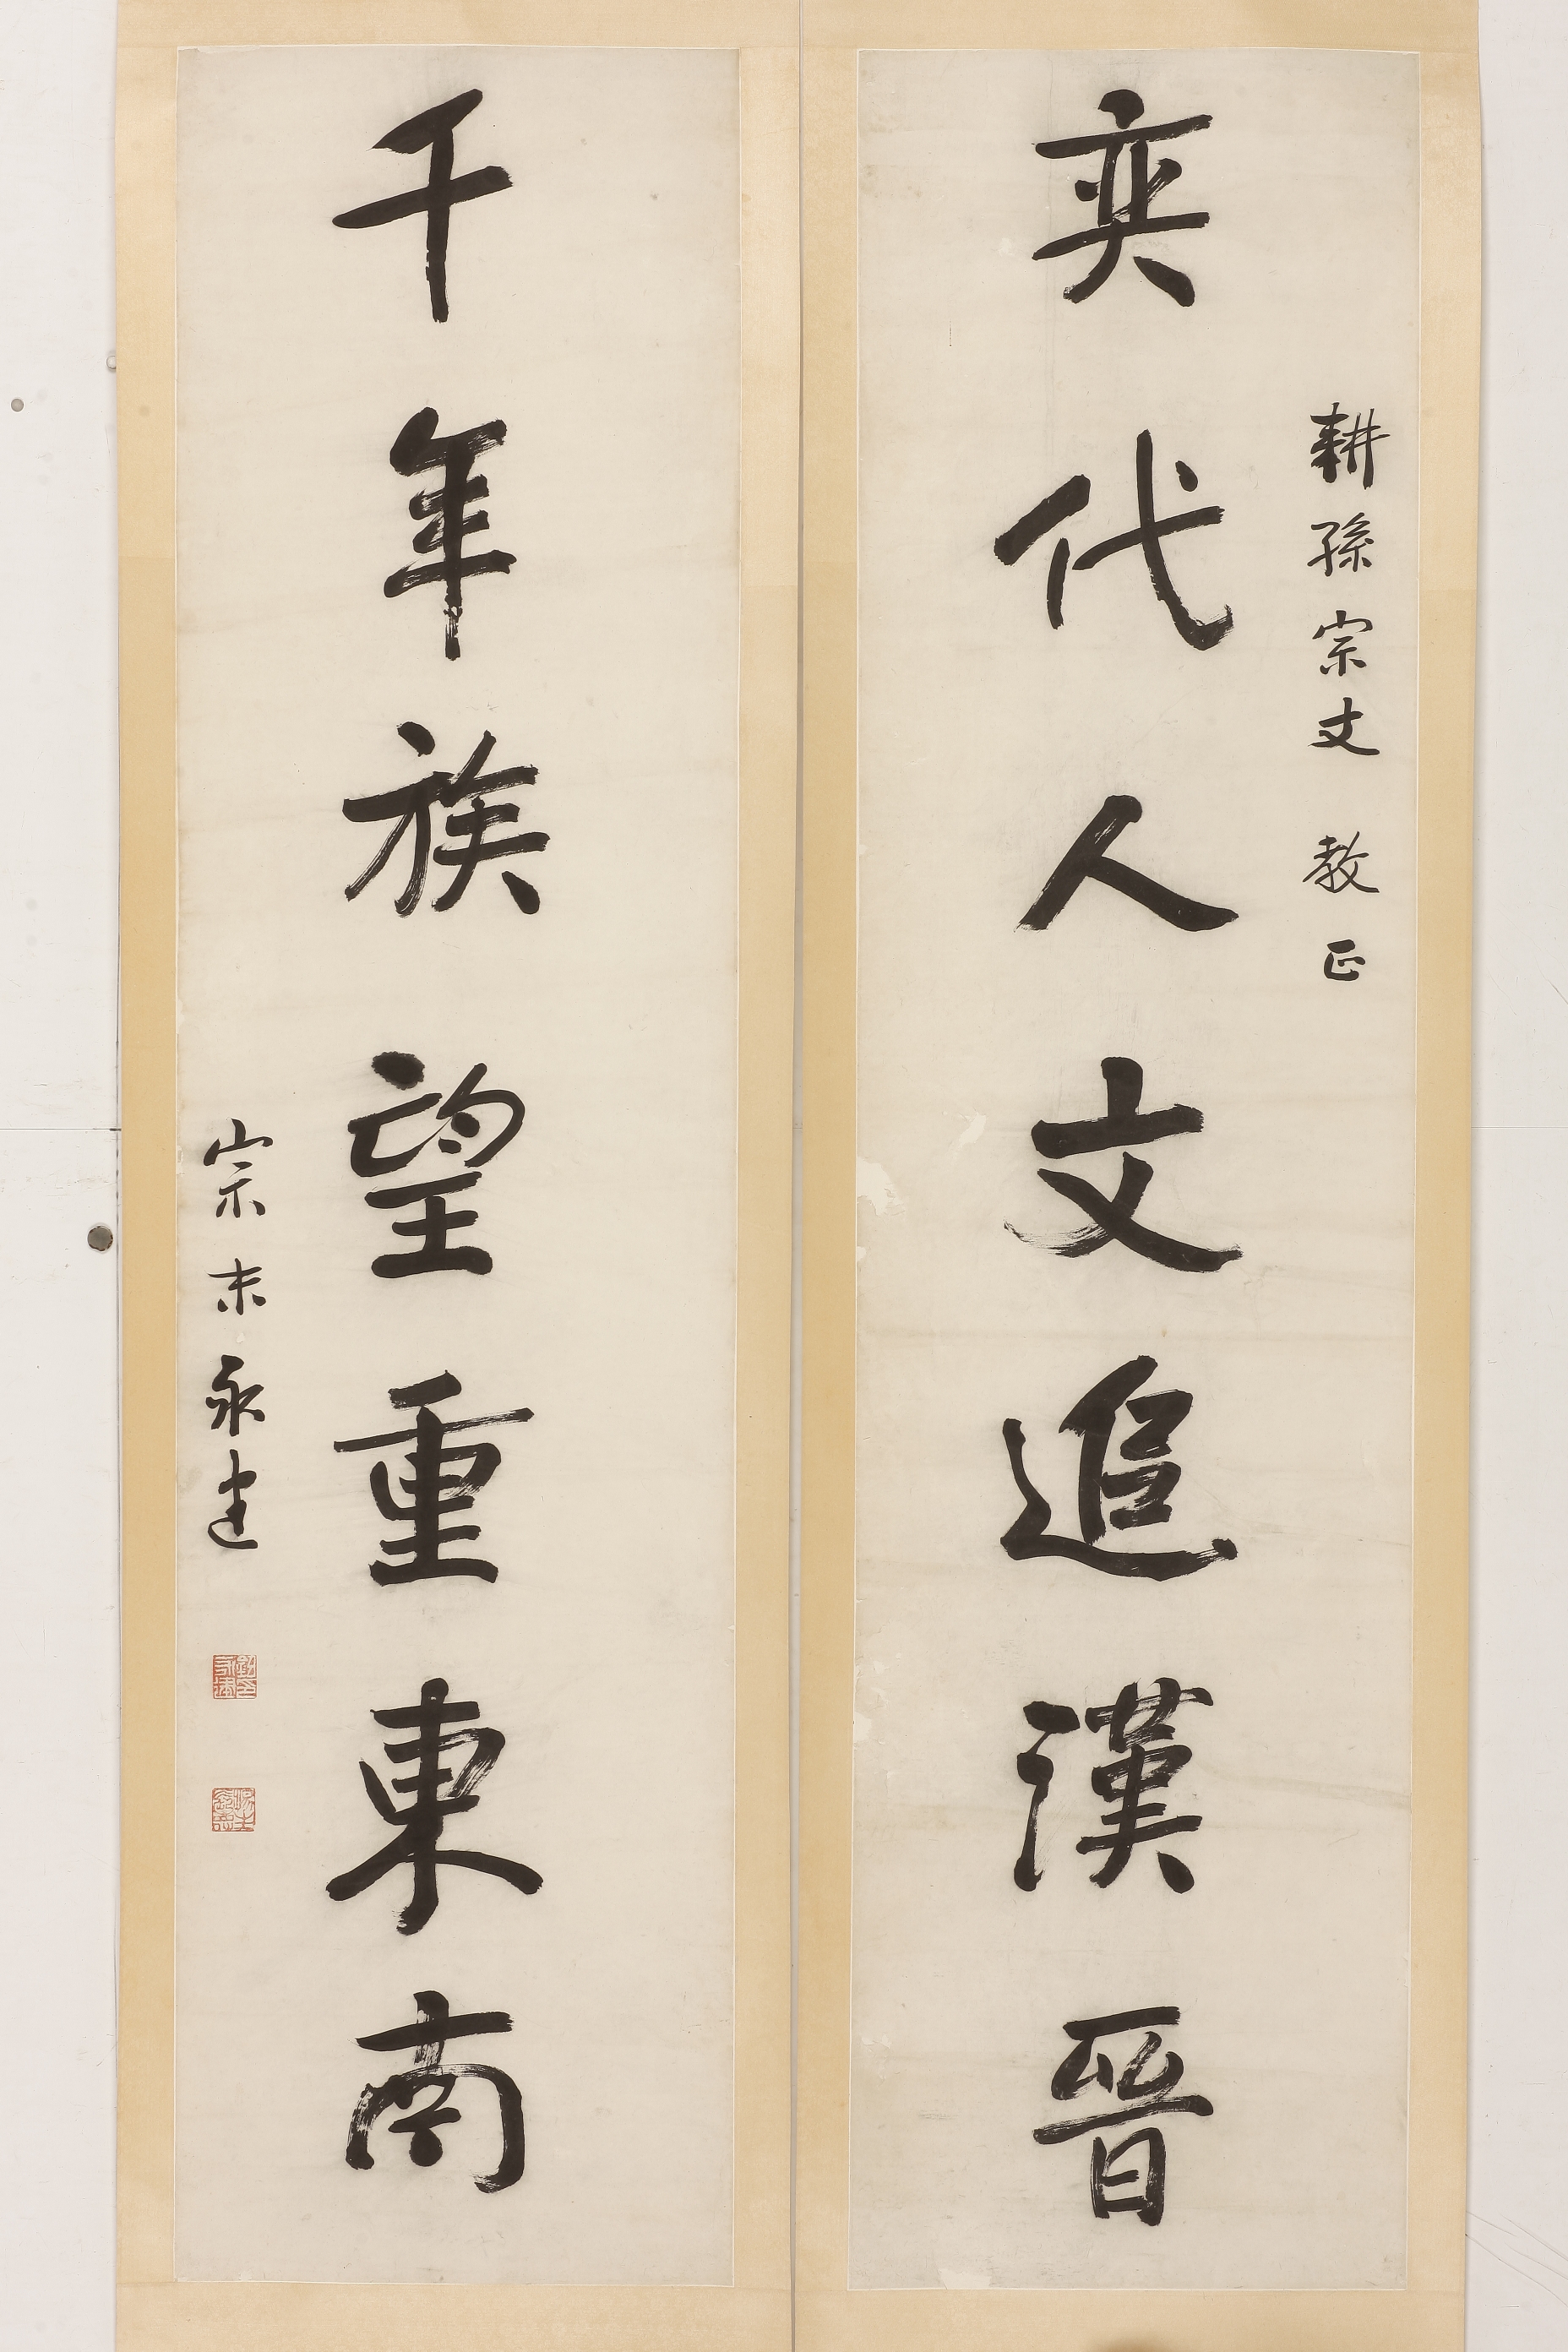 耕孫宗丈 教正
奕代人文追漢晉
千年族望重東南
宗末永建